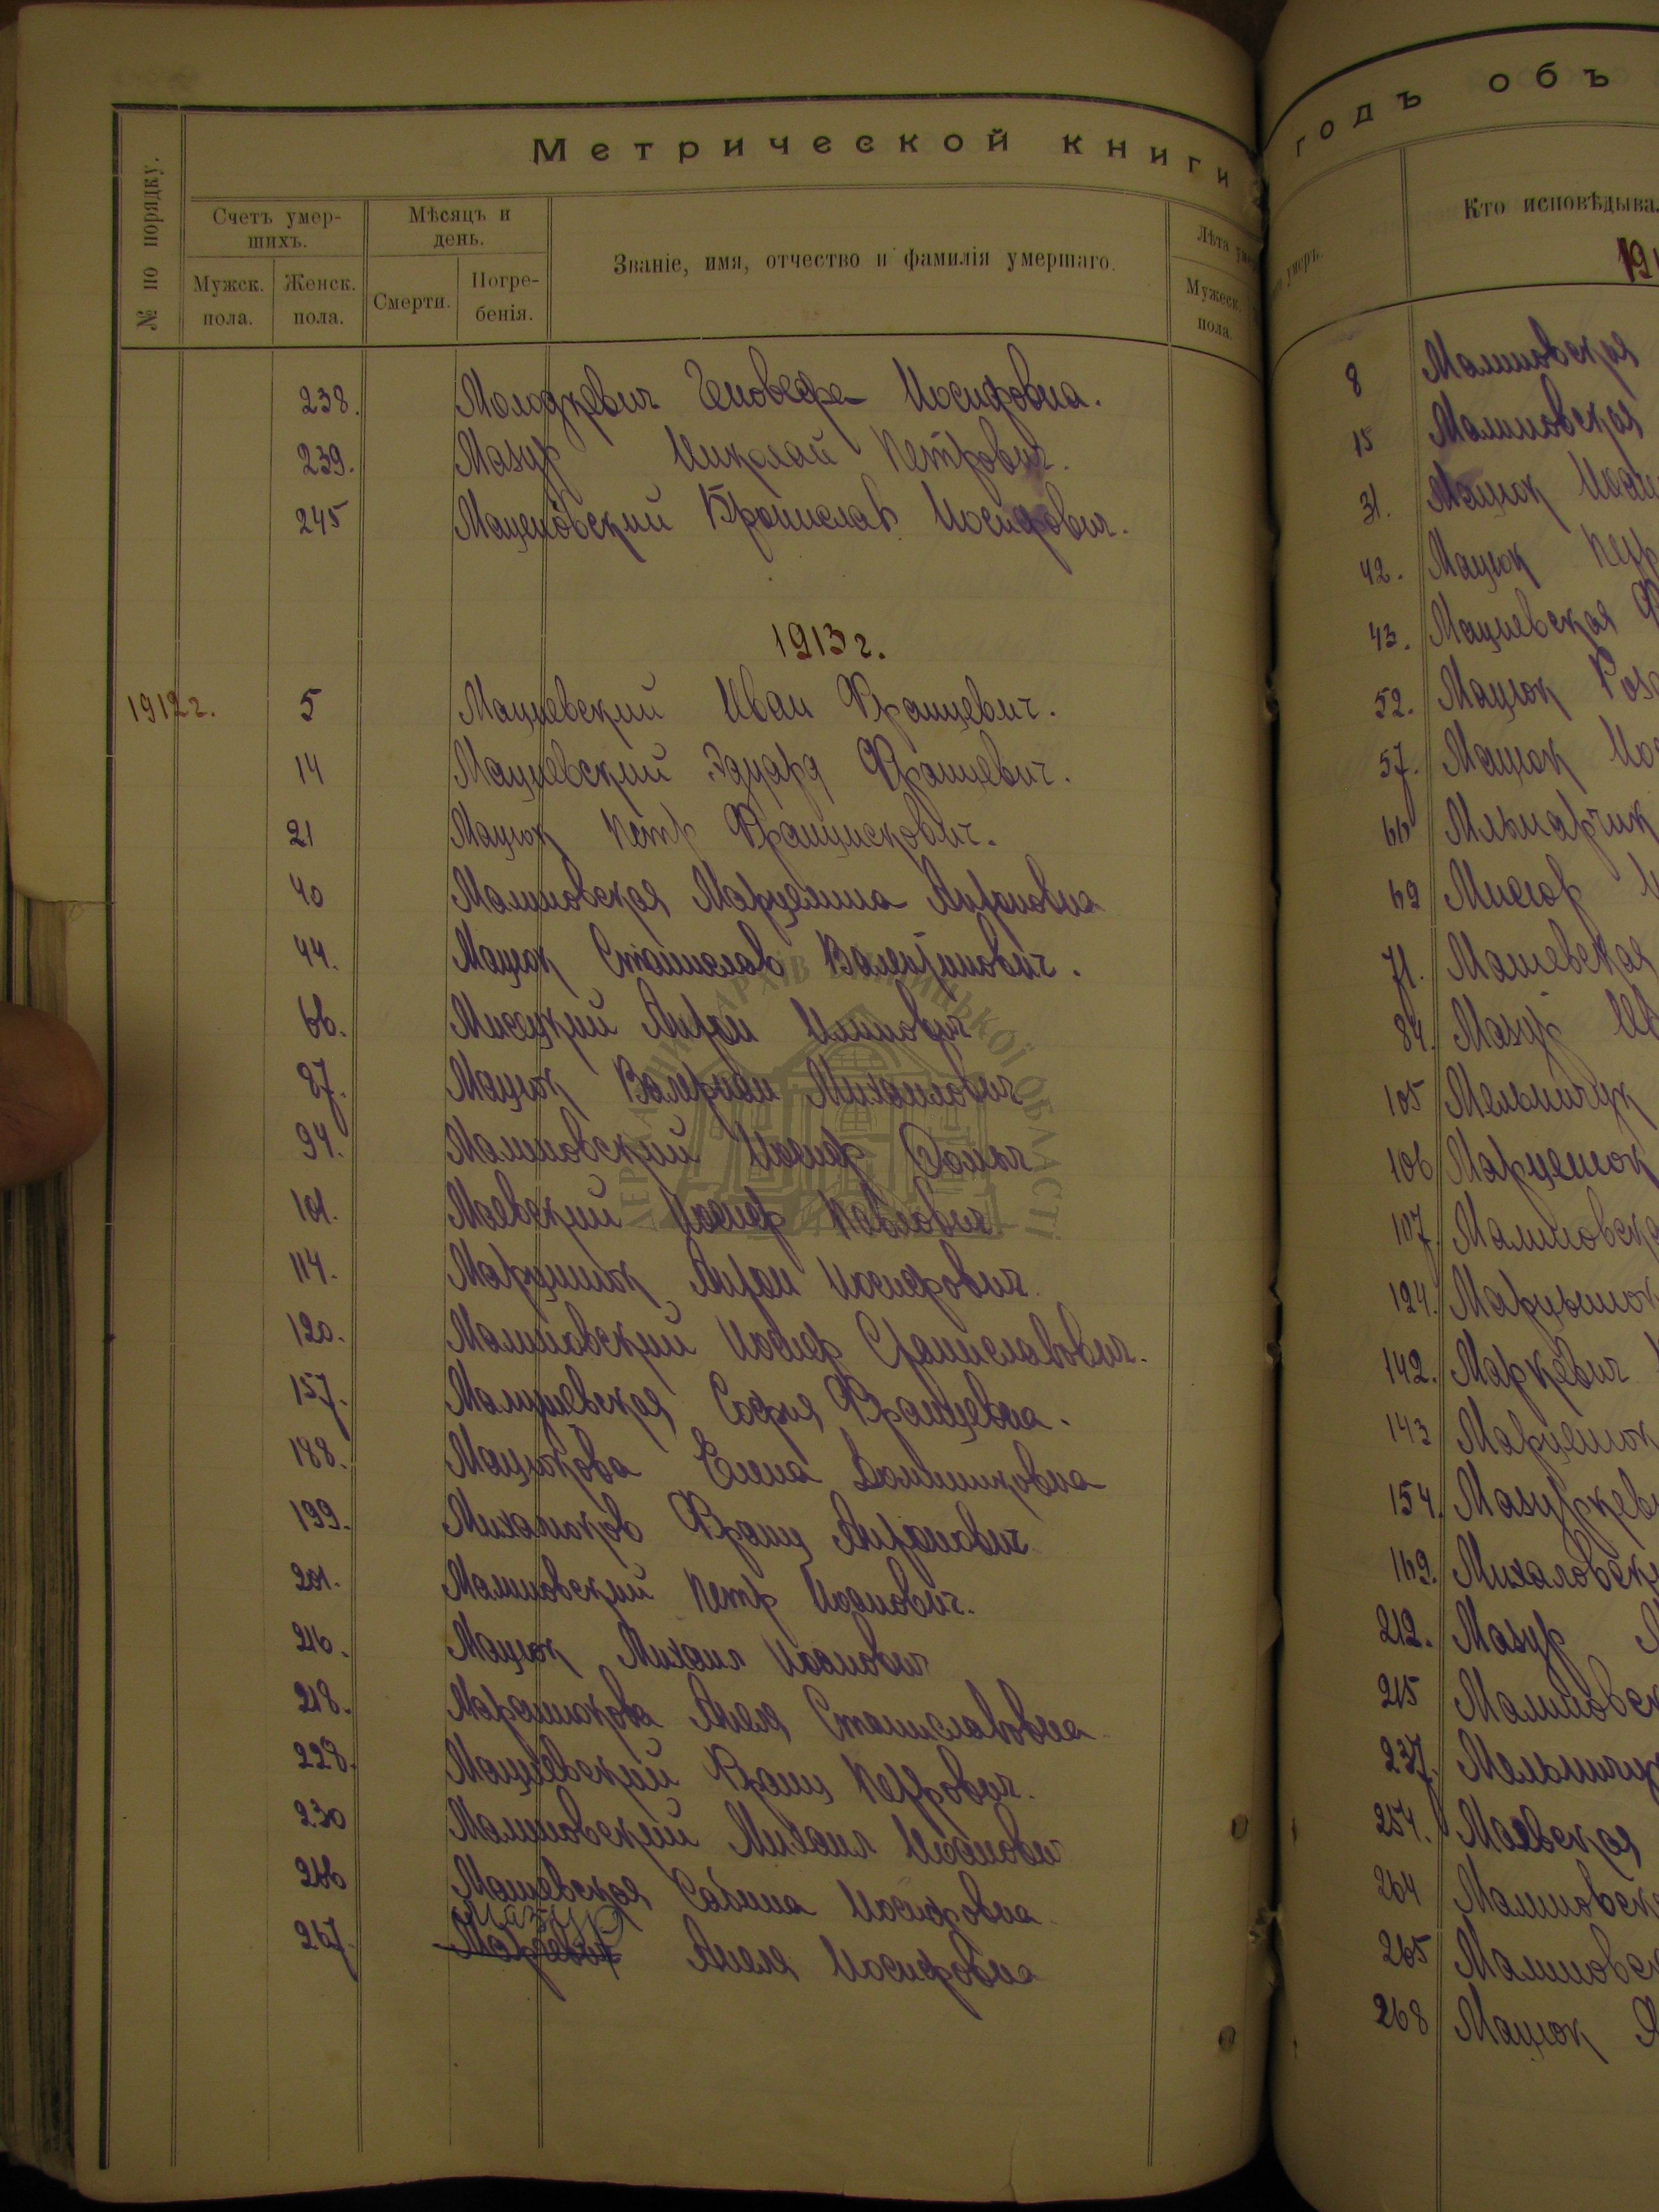 Метрической книги
№ по порядку.
Счетъ умер-
шихъ.
Мужск.
пола.
Женск.
пола.
Мѣсяцъ и
день.
Смерти.
Погре-
бенія.
Званіе, имя, отчество и фамилія умершаго.
Лѣта умер
Мужеск.
пола
238. Иосифовна.
239. Мазур Николай Петрович.
245 Мациовский Бронислав Иосифович.
1913 г.
1912 г.
5 Мациевский Иван Францевич.
14 Мациевский Эдуард Францевич.
21 Мацюк Петр Францискович.
40 Малиновская Марцелина Антоновна
44. Мацюк Станислав Валентинович.
66. Антон
87. Мацюк Валериан Михайлович
94. Малиновский Иосиф Фомич
101. Маевский Иосиф Павлович
114. Антон Иосифович.
120. Малиновский Иосиф Станиславович.
157. София Францевна.
188. Мацюкова Елена Доминиковна
199. Франц Антонович
201. Малиновский Петр Иванович.
216. Мацюк Михаил
218. Анеля Станиславовна
228. Мациевский Франц Петрович.
230 Малиновский Михаил
266 Маевская Сабина Иосифовна
Мазур
267. Анеля Иосифовна
годъ объ
умеръ.
Кто исповѣдыва
191
8 Малиновская
15 Малиновская
31. Мацюк
42. Мацюк
43. Мациевская
52. Мацюк
57. Мацюк
66 Мельнарчик
69
71. Маевская
84. Мазур
105 Мельничук
106 Марценюк
107. Малиновск
124.
142. Маркевич
143 Марценюк
154. Мазуркев
169. Михаловск
212. Мазур
215 Малиновск
237. Мельничук
254. Маевская
264 Малиновск
265 Малиновск
268 Мацюк